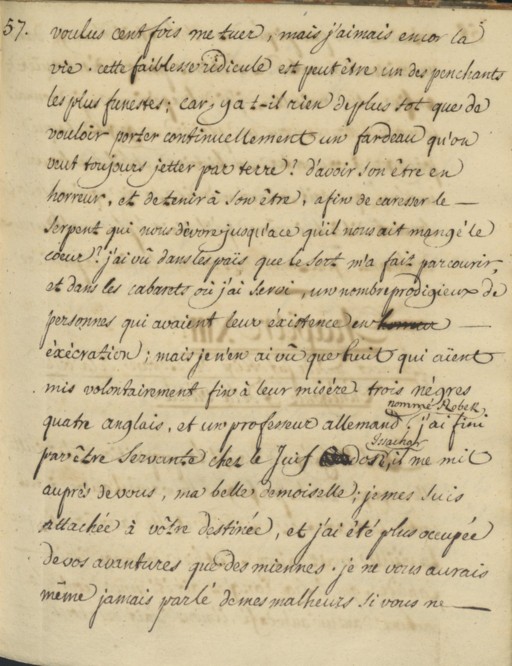 57.
voulus cent fois me tuer, mais j'aimais encor la
vie. cette faiblesse ridicule est peut être un des penchants
les plus funestes; car y a t-il rien de plus sot que de
vouloir porter continuellement un fardeau qu'on
veut toujours jetter par terre? d'avoir son être en
horreur, et de tenir à son être, afin de caresser le —
serpent qui nous dévore jusqu'a ce qu'il nous ait mangé le
coeur? j'ai vû dans les païs que le sort m'a fait parcourir,
et dans les cabarets où j'ai servi, un nombre prodigieux de
personnes qui avaient leur éxistence en horreur —
éxécration; mais je n'en ai vû que huit qui aïent
mis volontairement fin à leur misére trois négres
nommé Robek.
quatre anglais, et un professeur allemand. j'ai fini
Issachar
par être servante chez le Juif, il me mit
auprès de vous, ma belle demoiselle; je me suis
attachée à vôtre destinée, et j'ai été plus occupée
de vos avantures que des miennes. je ne vous aurais
même jamais parlé de mes malheurs si vous ne —